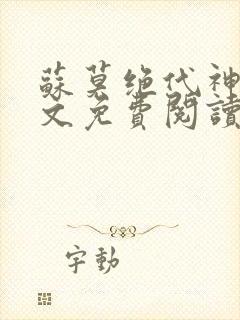 蘇莫绝代神
文免費閱讀
字動